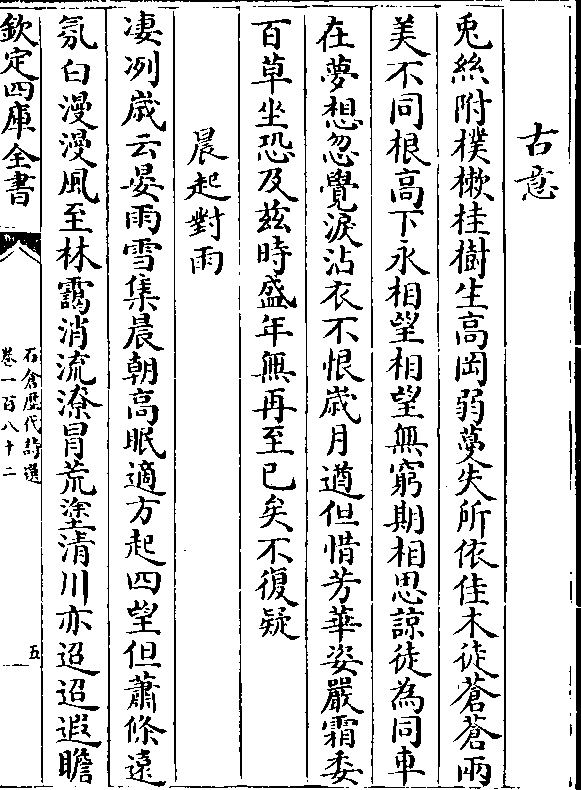 古意
兎絲附樸樕桂樹生高岡弱蔓失所依佳木徒蒼蒼兩
美不同根高下永相望相望無窮期相思諒徒為同車
在夢想忽覺淚沾衣不恨歲月遒但惜芳華姿嚴霜委
百草坐恐及兹時盛年無再至已矣不復疑
晨起對雨
凄冽歲云晏雨雪集晨朝高眠適方起四望但蕭條遠
氛白漫漫風至林靄消流潦冐荒塗清川亦迢迢遐瞻
欽定四庫全書
石倉歷代詩選
卷一百八十二
五